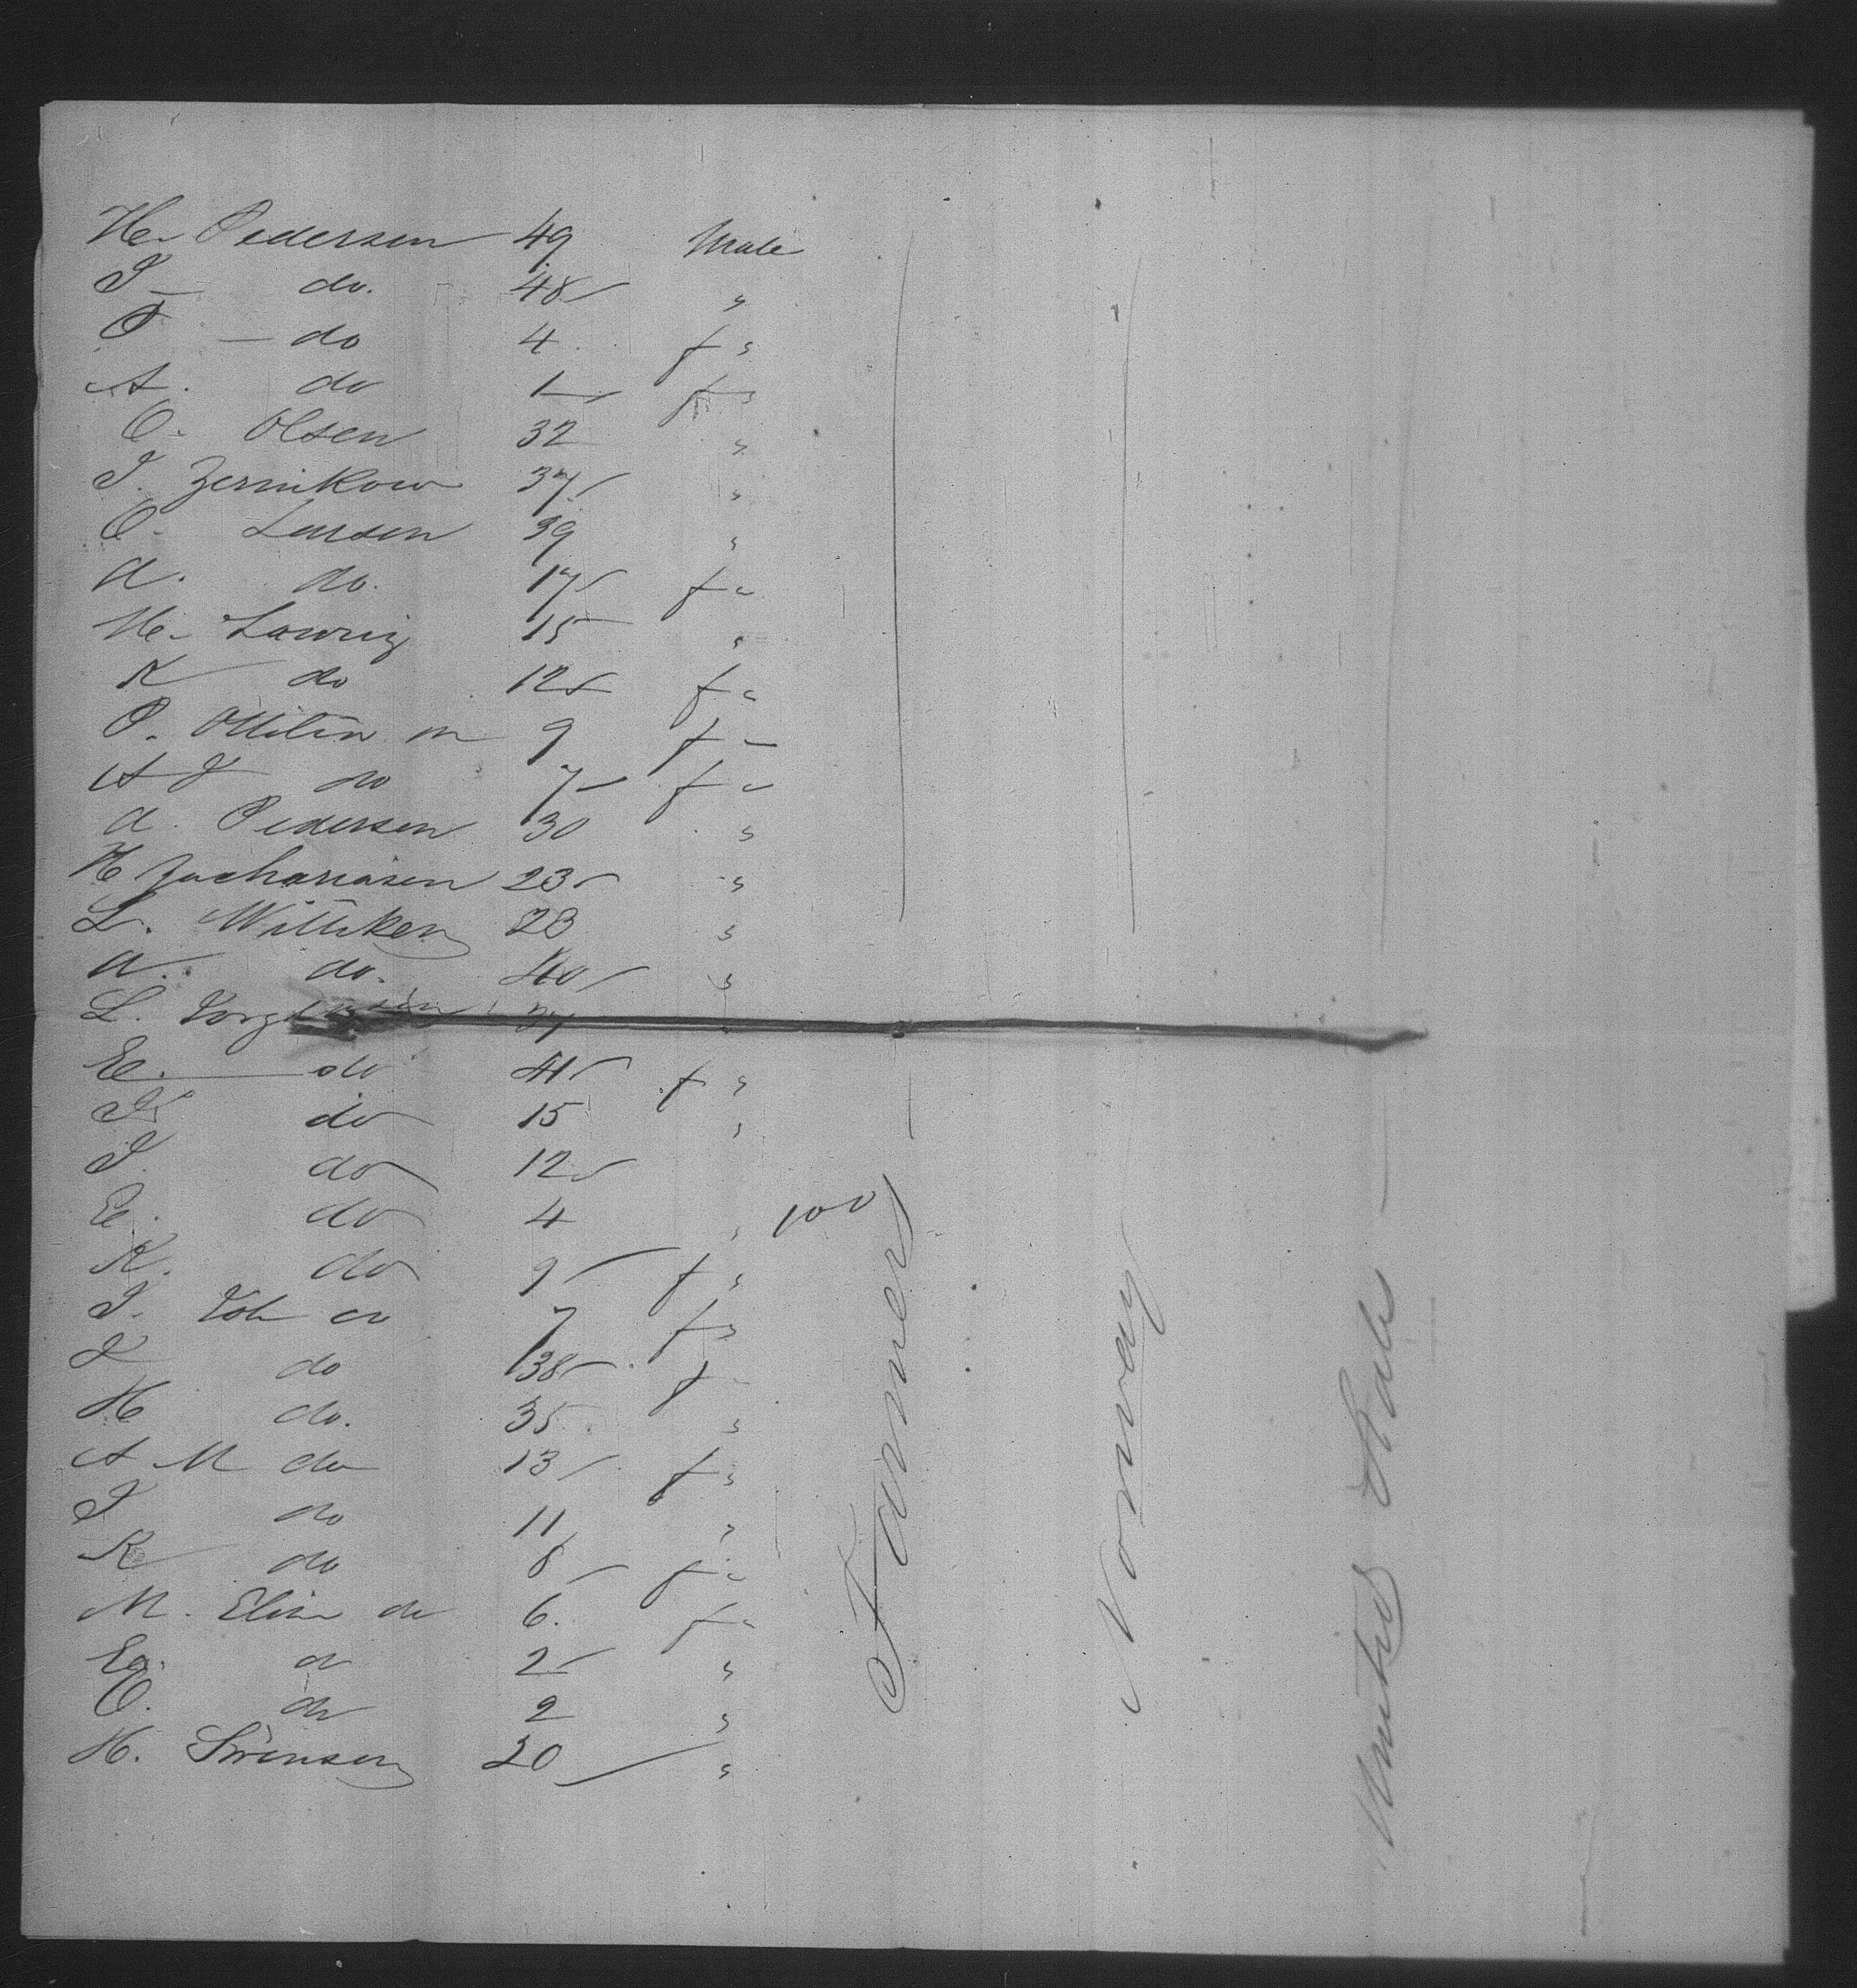 H. Pedersen 49 Male
J — do. 48 "
P — do 4 f "
A. do 1 f "
O. Olsen 32 "
J. Zernikow 37 "
O. Larsen 39 "
A. do. 17 f "
H. Lawrig 15 "
K do 12 f "
P. Ottilin m 9 f "
A J do 7 f "
A. Pedersen 30 "
H Zachariasen 23 "
L. Williken 28 "
A. do. 40 "
L. 37 "
E. do 41 f "
K do 15 "
J. do 12
E. do 4 " 100
K. do 9 f "
J. do 7 f "
J do 38 f "
H do. 35 "
A M do 13 f "
J do 11 "
K do 8 f "
M. Elise do 6. f "
E. do 2 "
O. do 2 "
H. Sörensen 20 "
Farmers
Norway
United States